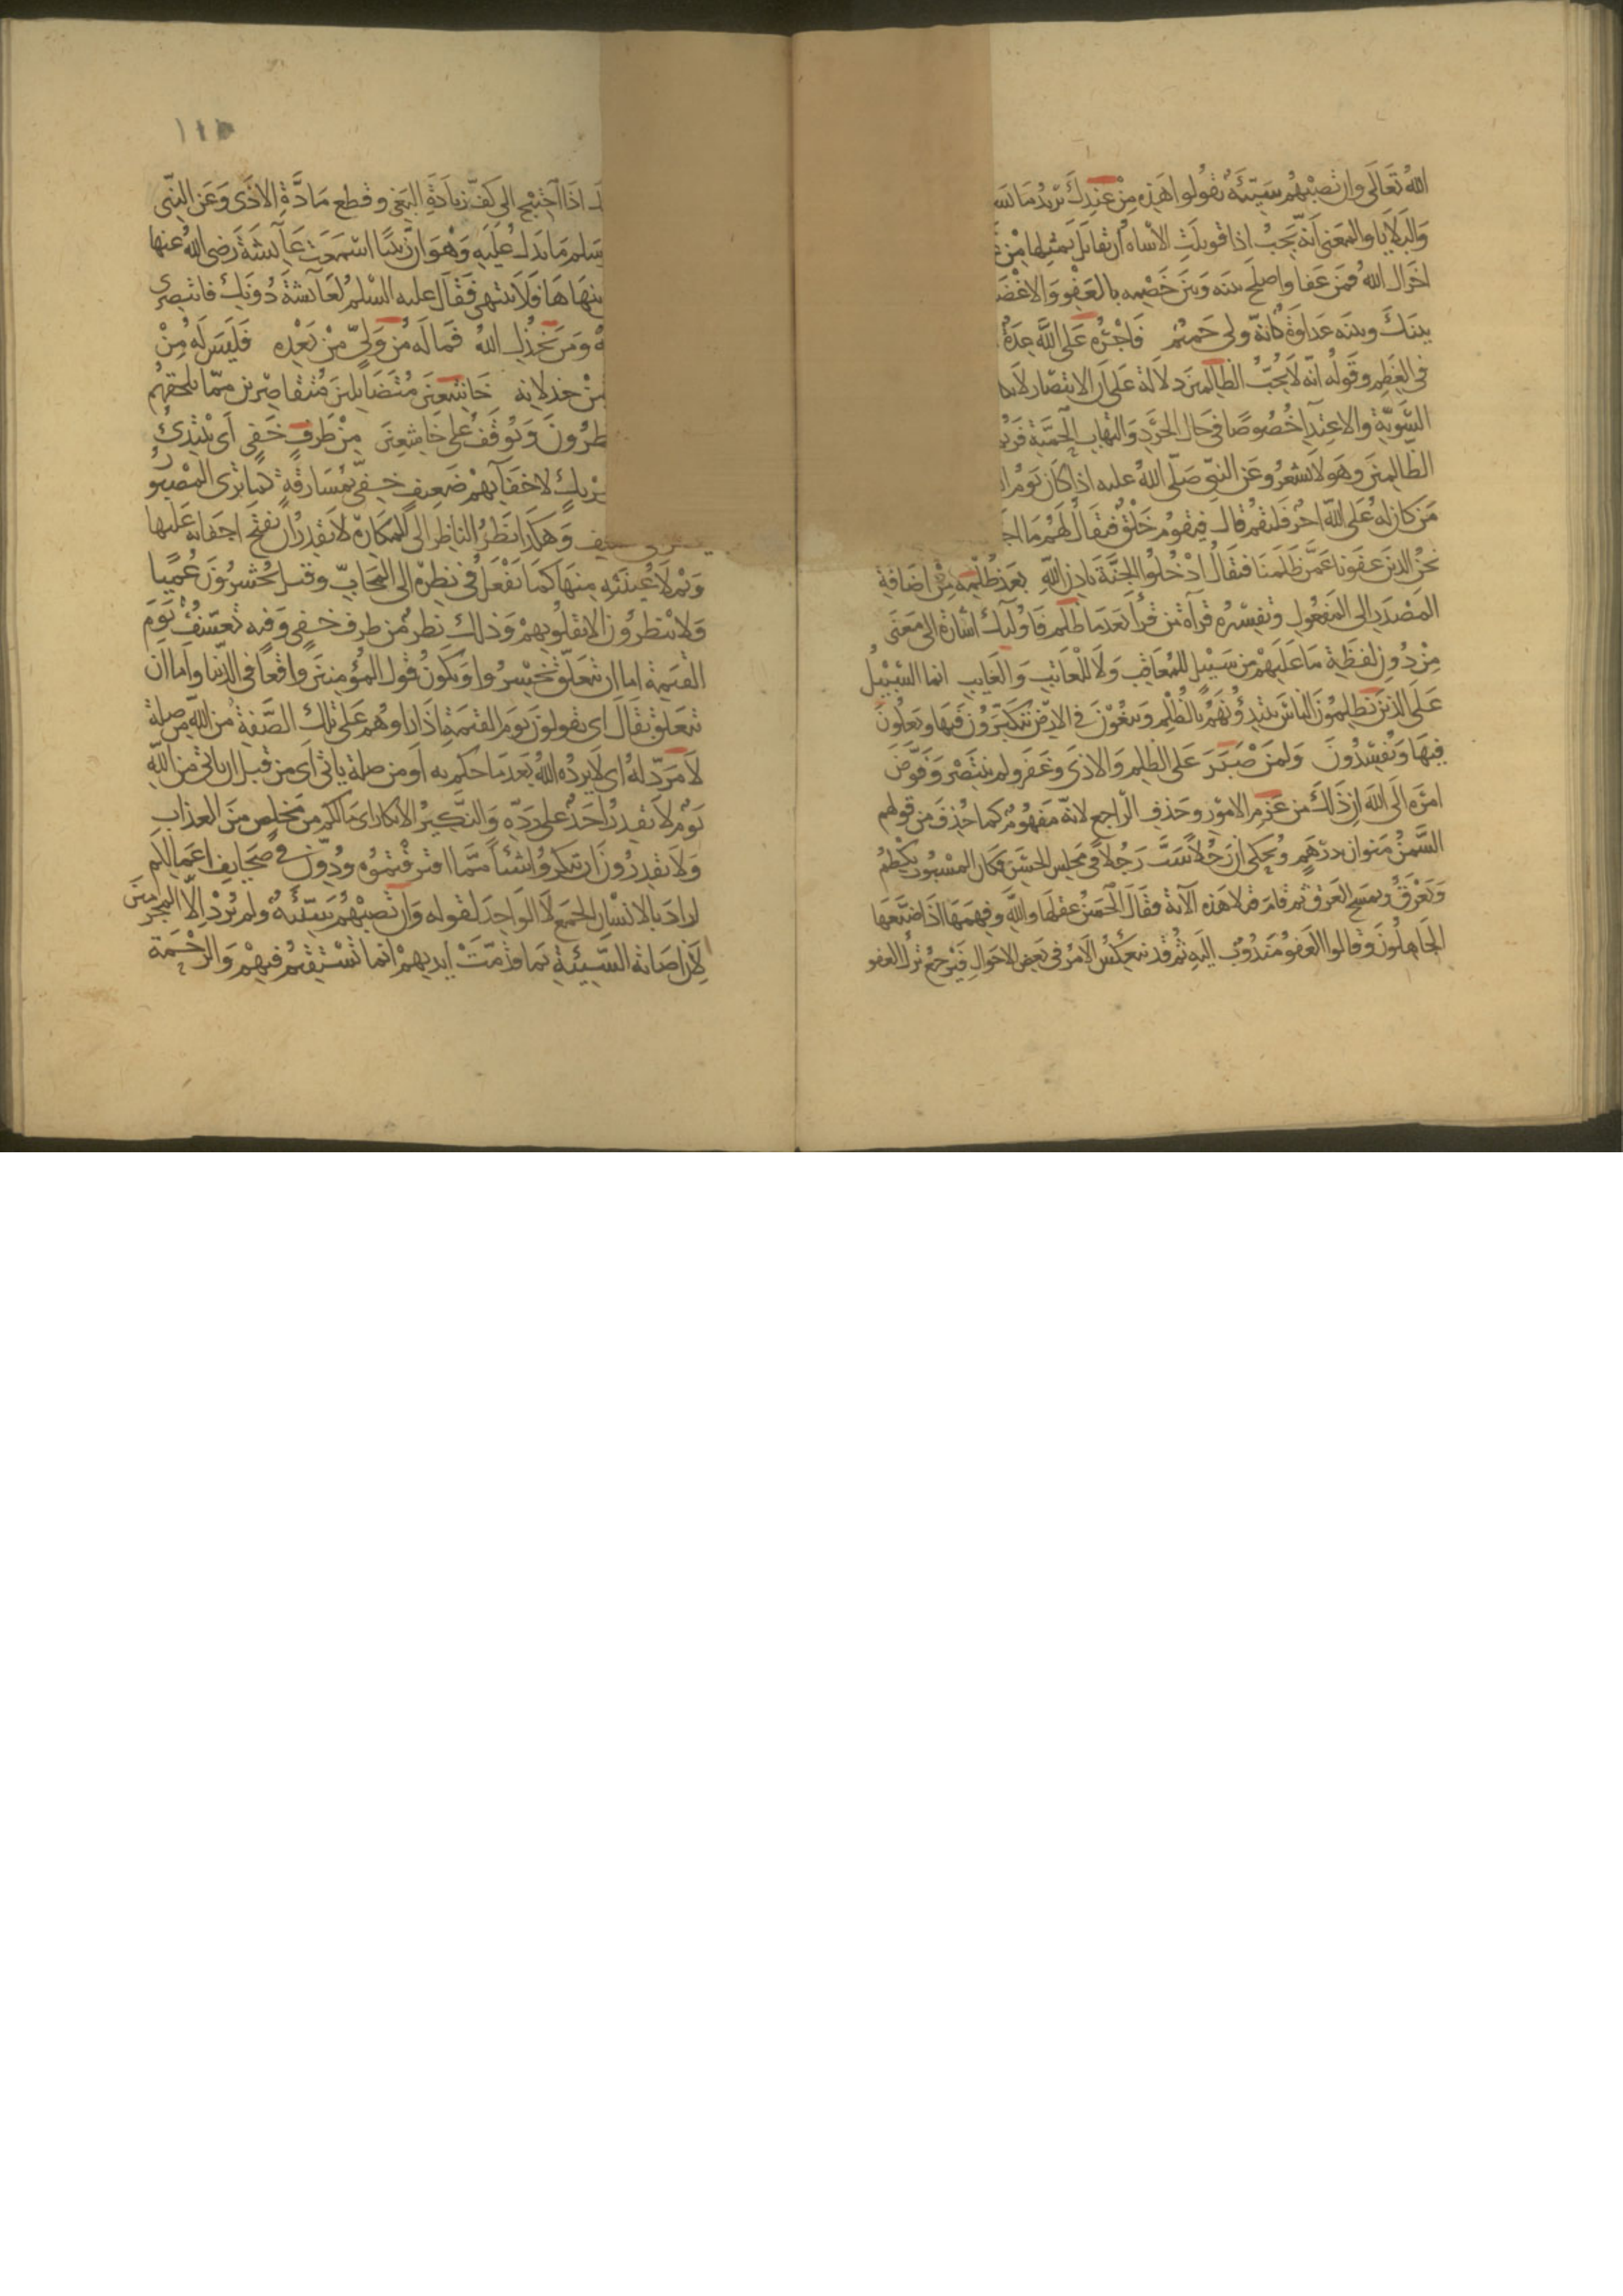 الله تعالى وان تصبهم سيئة يقولوا هذه من عندك يريد ما يسو
والبلايا والمعنى انه يجب اذا قوبلت الاساة ان تقابل بمثلها من
فمن عفا واصلح بينه وبين خصمه بالعفو والاغضا
بينك وبينه عداوة كانه ولى حميم فاجره على الله عدة
فى العظم وقوله انه لا يحب الظالمين دلالة على ان الانتصار لا يكا
السوية والاعتدآ خصوصا فى حال الحرد والتهاب الحمية فربما
الظالمين وهو لا يشعر وعن النبى صلى الله عليه اذا كان يوم ا
من كان له على الله اجر فليقم قال فيقوم خلق فيقال لهم ما اجـ
نحن الذين عفونا عمن ظلمنا فيقال ادخلوا الجنة باذن الله بعد ظلمه من اضافة
المصدر الى المفعول وتفسره قرآة من قرأ بعد ما ظلم فاوليك اشارة الى معنى
من دون لفظة ما عليهم من سبيل للمعاقب ولا للعاتب والعايب انما السبيل
على الذين يظلمون الناس يبتدؤنهم بالظلم ويبغون فى الارض يتكبرون فيها ويعلون
فيها ويفسدون ولمن صبر على الظلم والاذى وغفر ولم ينتصر وفوض
امره الى الله ان ذلك من عزم الامور وحذف الراجع لانه مفهوم كما حذف من قولهم
السمن منوان بدرهم ويحكى ان رجلا سب رجلا فى مجلس الحسن فكان المسبوب يكظم
ويعرق ويمسح العرق ثم قام فتلا هذه الآية فقال الحسن عقلها والله وفهمها اذا ضيعها
الجاهلون وقالوا العفو مندوب اليه ثم قد ينعكس الامر فى بعض الاحوال فيرجع ترك العفو
اذا احتيج الى كف زيادة البغى وقطع مادة الاذى وعن النبى
وسلم ما يدل عليه وهو ان زينب اسمعت عايشة رضى الله عنها
ينهاها فلا ينتهى فقال عليه السلم لعآئشة دونك فانتصرى
ومن يخذل الله فما له من ولى من بعده فليس له من
من خذلانه خاشعين متضايلين متقاصرين مما يلحقهم
ويوقف على خاشعين من طرف خفى اى يبتدئ
ضعيف خفى بمسارقة كما ترى المصبور
وهكذا نظر الناظر الى المكاره لا يقدر ان يفتح اجفانه عليها
ويملا عينيه منها كما يفعل فى نظره الى المحاب وقيل يحشرون عميا
فلا ينظرون الا بقلوبهم وذلك نظر من طرف خفى وفيه تعسف يوم
القيمة اما ان يتعلق بخسروا ويكون قول المؤمنين واقعا فى الدنيا واما ان
يتعلق بقال اى يقولون يوم القيمة اذا راوهم على تلك الصفة من الله من صلة
لا مرد له اى لا يرده الله بعد ما حكم به او من صلة ياتى اى من قبل ان ياتى من الله
يوم لا يقدر احد على رده والنكير الانكار اى ما لكم من مخلص من العذاب
ولا يقدرون ان ينكروا شيئا مما اقترفتموه ودون فى صحايف اعمالكم
اراد بالانسان الجمع لا الواحد لقوله وان تصبهم سيئة ولم يرد الا المجرمين
لان اصابة السيئة بما قدمت ايديهم انما تستقيم فيهم والرحمة